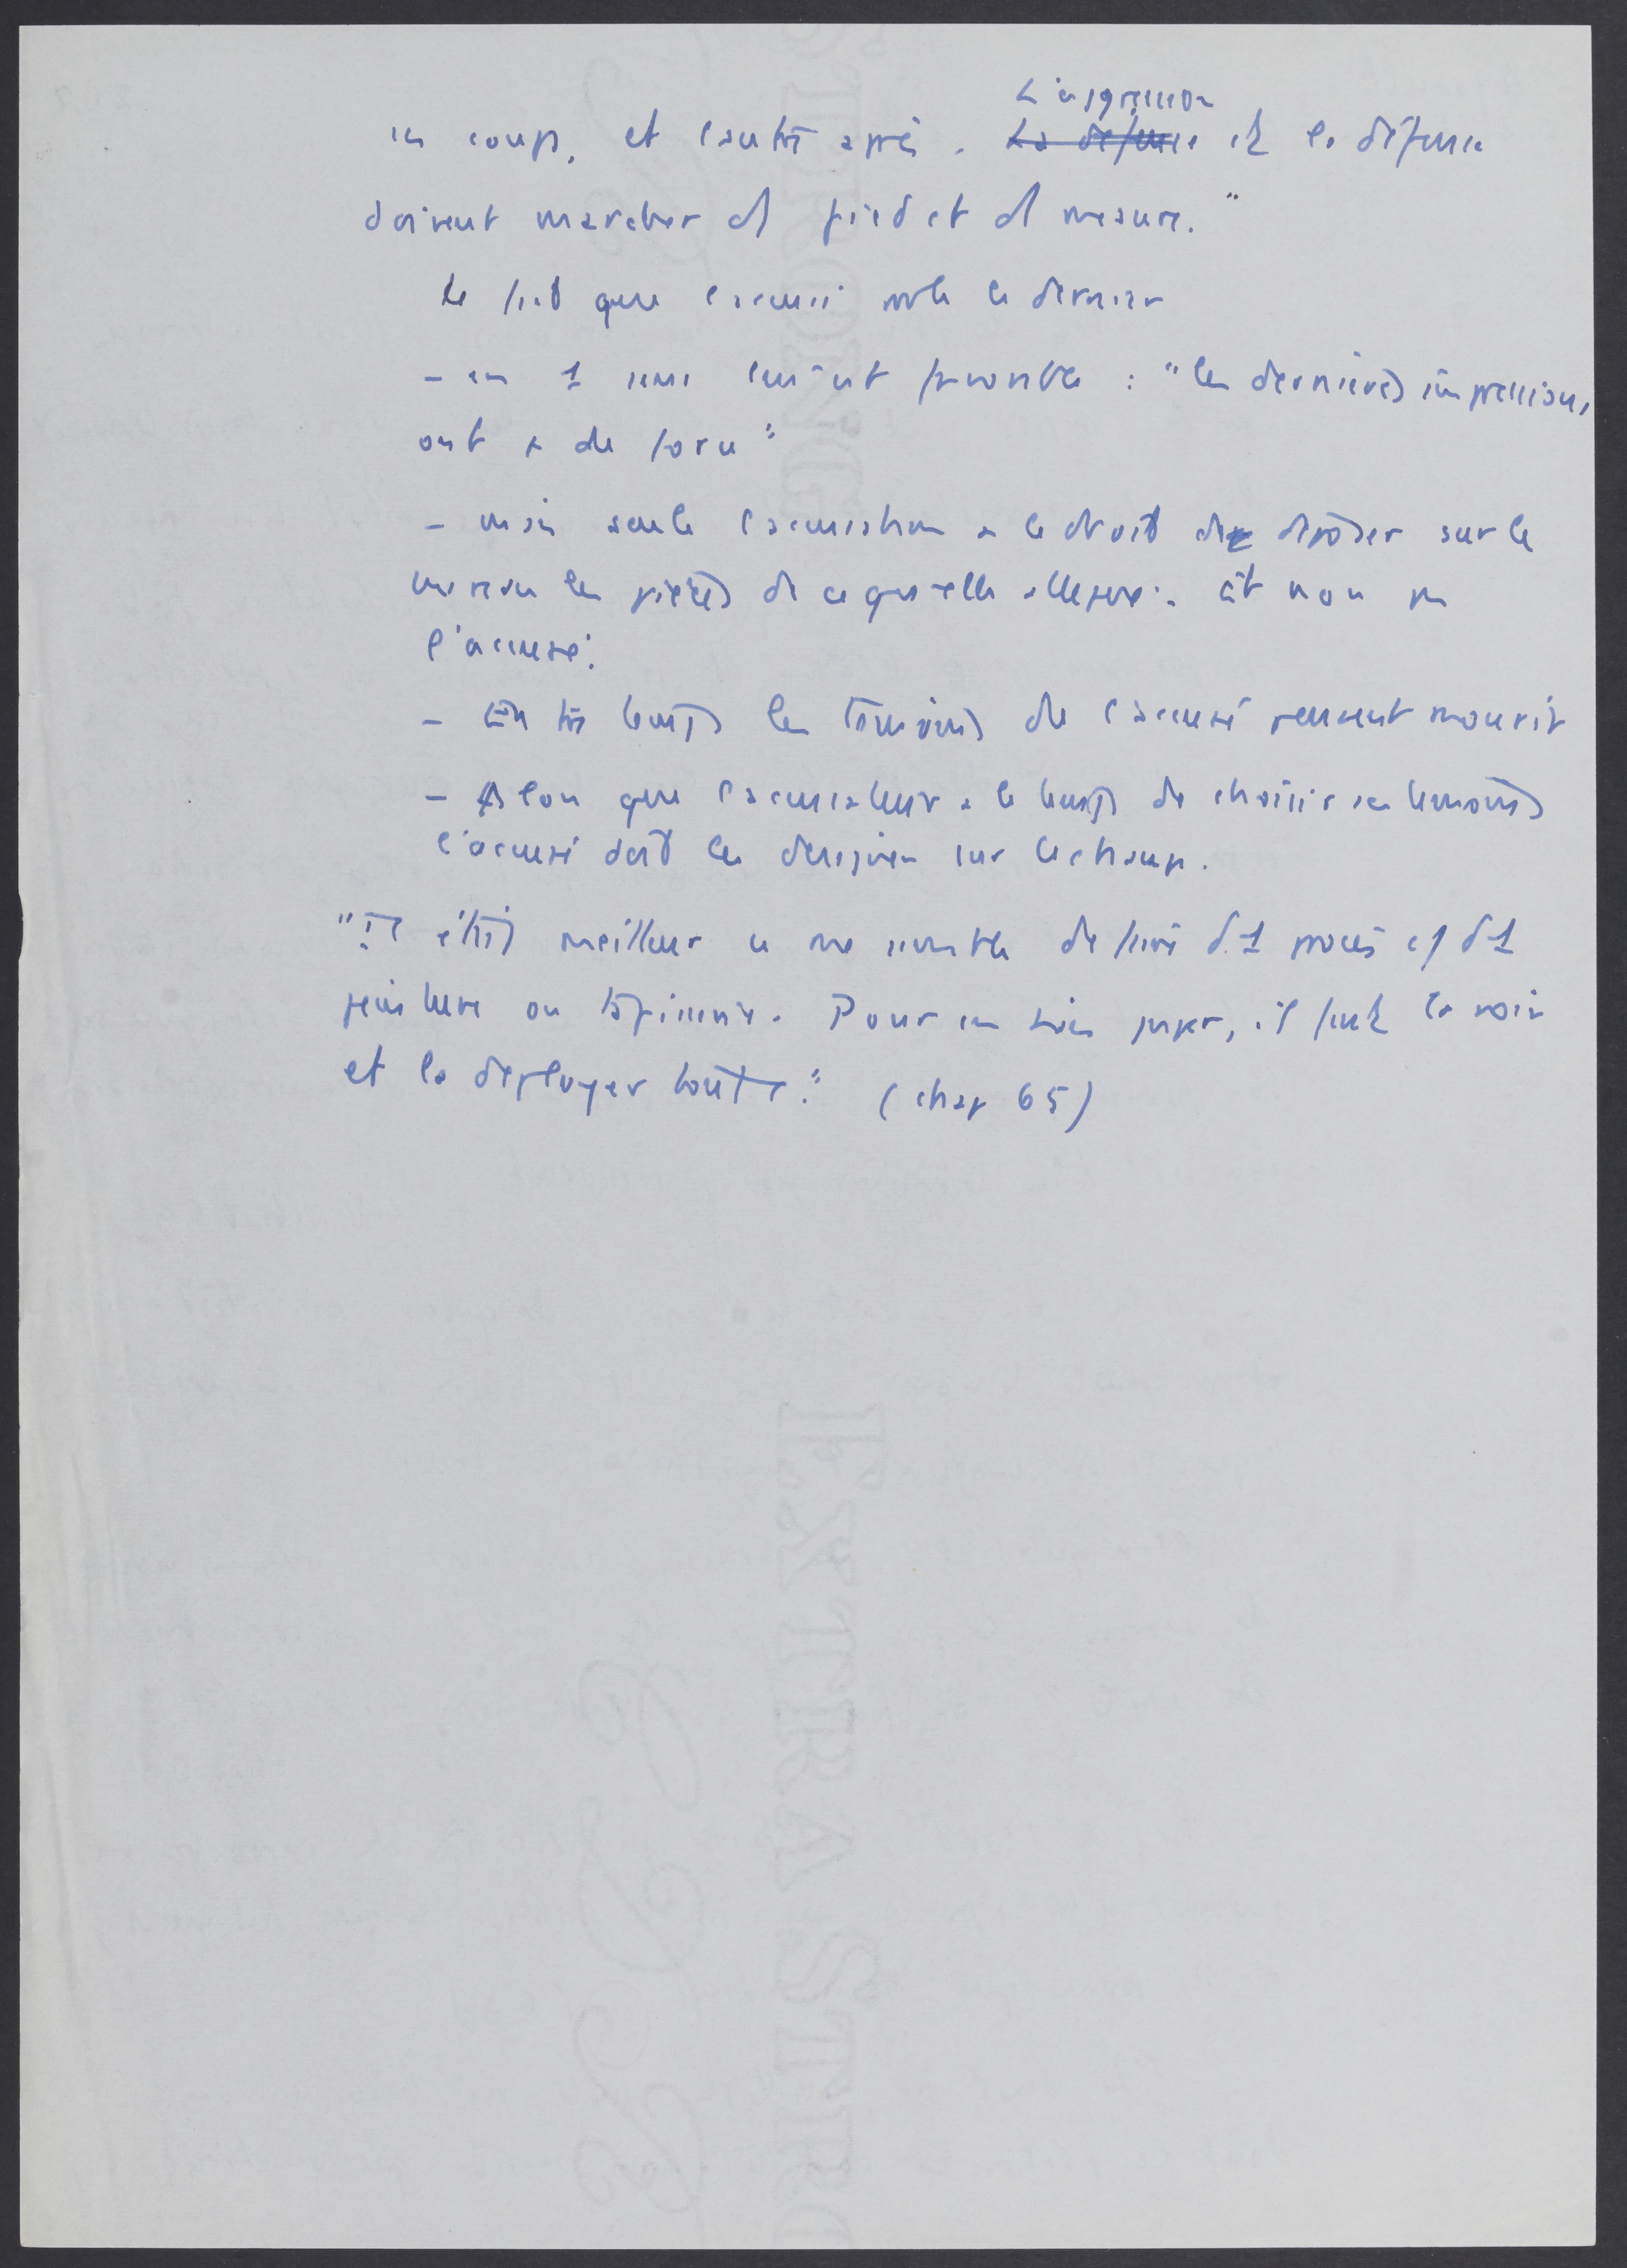 L'agression
un coup, et l'autre après. La défense et la défense
doivent marcher d pied et d mesure."
Le fait que l'accusé parle le dernier
- en 1 sens lui est favorable : "les dernières impressions
ont + de force"
- mais seule l'accusation a le droit de déposer sur le
bureau les pièces de ce qu'elle allègue. Et non pas
l'accusé.
- Entre temps les témoins de l'accusé peuvent mourir
- Alors que l'accusateur a le temps de choisir ses témoins
l'accusé doit les désigner sur le champ.
"Il était meilleur ce me semble de d'1 procès c/ d'1
peinture ou tapisserie. Pour en bien juger, il faut la voir
et la déployer toute." (chap 65)